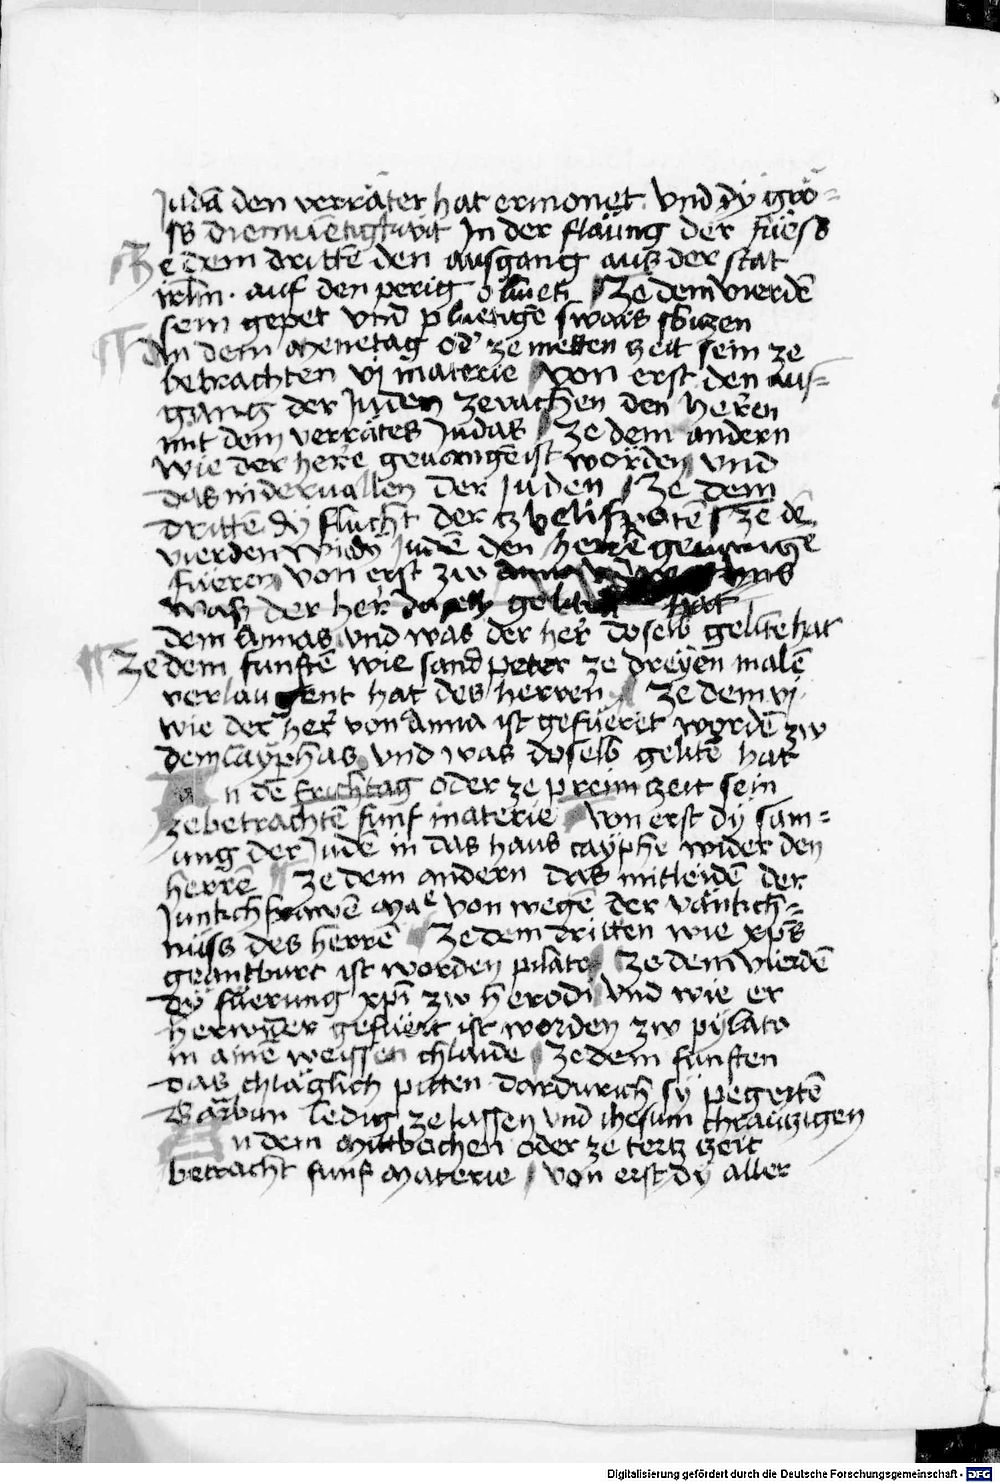 Judā den verräter hat ermonet. vnd dÿ grö=
ss diemüētigkait Jn der flaüng der füess
Ze dem dritten den ausgang aus der stat
irlm. auf den perig oliueti Ze dem vierdē
sein gepet vnd pluetigē swais swizen
An dem Menetag od' ze metten zeit sein ze
betrachten vj materie von erst den aus=
gang der Juden ze vachen den herren
mit dem verräter Judas Ze dem andern
wie der herre geuangē ist worden vnd
das nideruallen der Juden Ze dem
dritten dÿ flucht der zwelifpotē Ze dē
vierden wie dÿ Judē den herrē geuangē
füeren von erst zw
was der her gelitē hat
dem Annas vnd was der her doselb gelitē hat
Ze dem funftē wie sand peter ze dreÿen malē
verlaugent hat des herren Ze dem vj
wie der her von Anna ist gefüeret wordē zw
dem Caÿphas vnd was doselb gelitē hat
An dē Erichtag oder ze preim zeit sein
ze betrachtē funf materie von erst dÿ sam=
ung der Judē in das haus caÿphe wider den
herrē Ze dem andern das mitleidē der
Junkchfrawē Mae von wegē der vänkch=
nüss des herrē Ze dem dritten wie xps
geantburt ist worden pilato Ze dem vierdē
dÿ füerung xpi zw herodi vnd wie er
herwider gefüert ist worden zw pÿlato
in ainē weissen chlaide Ze dem funften
das chläglich pitten dardurich sÿ pegertē
Barbun ledig ze lassen vnd ihesum chraüzigen
An dem Mitbochen oder ze tertz zeit
betracht funf Materie von erst dÿ aller